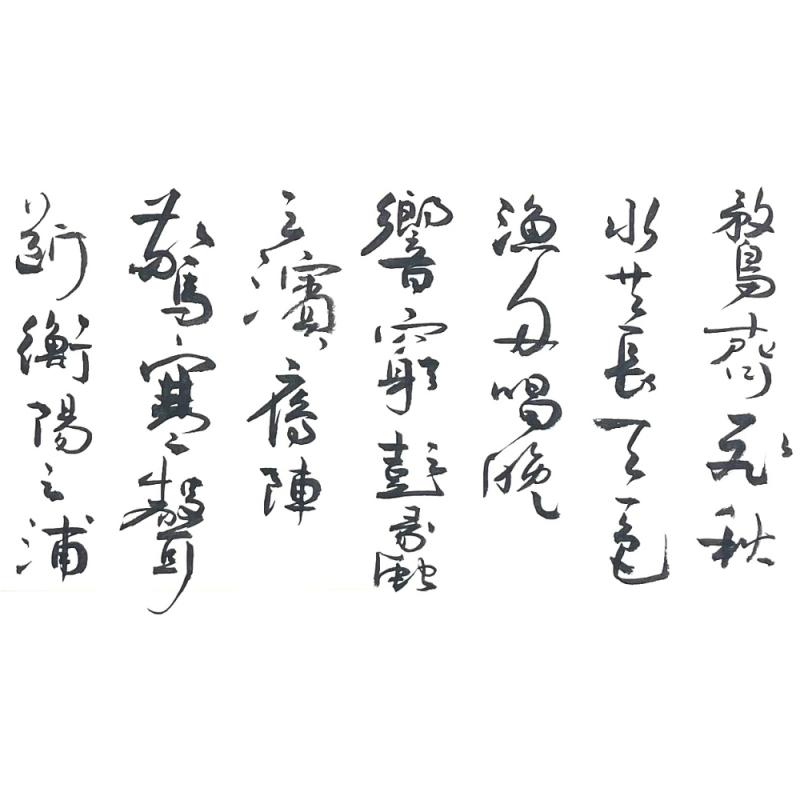 鶩齊飛秋
水共長天一色
漁舟唱晚
響窮彭蠡
之濱雁陣
驚寒聲
斷衡陽之浦